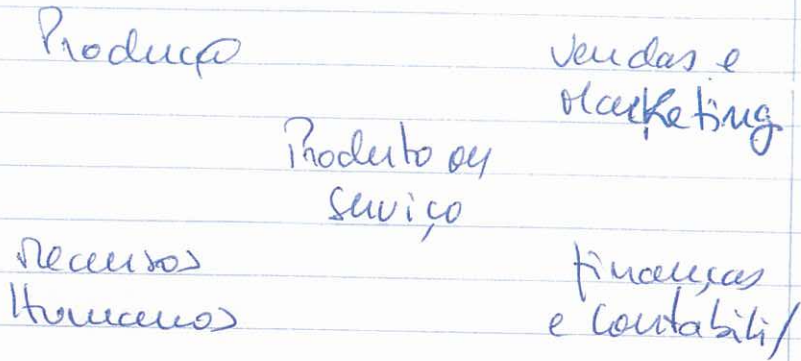 Produção
Vendas e
Marketing
Produto ou
serviço
Recursos
Humanos
finanças
e Contabili/